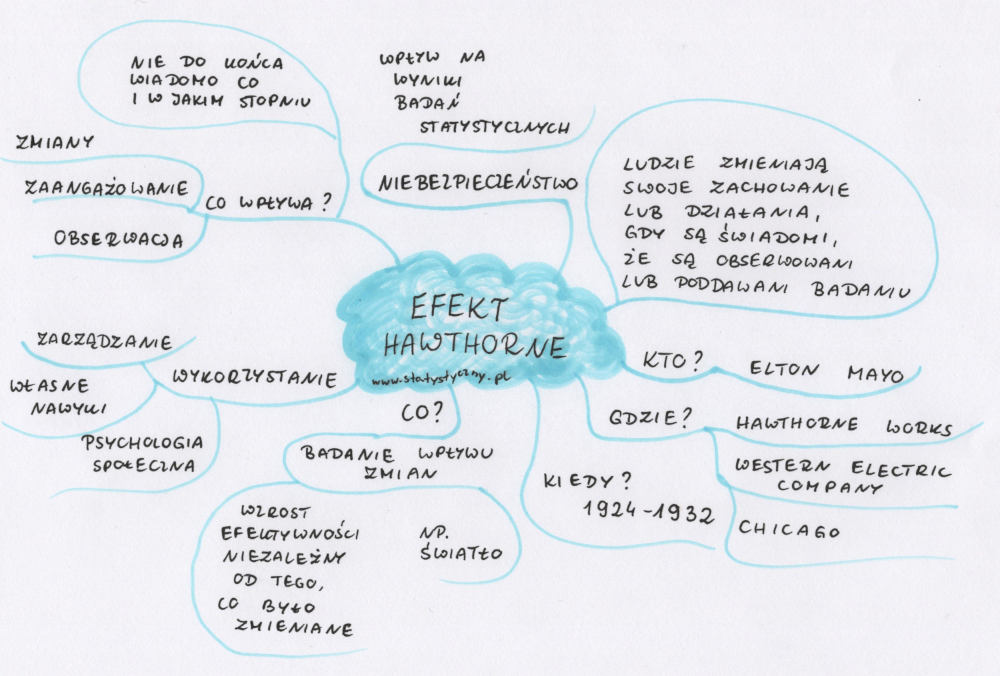 EFEKT
HAWTHORNE
www.statystyczny.pl
NIE DO KOŃCA
WIADOMO CO
I W JAKIM STOPNIU
ZMIANY
ZAANGAŻOWANIE
OBSERWACJA
CO WPŁYWA?
WPŁYW NA
WYNIKI
BADAŃ
STATYSTYCZNYCH
NIEBEZPIECZEŃSTWO
LUDZIE ZMIENIAJĄ
SWOJE ZACHOWANIE
LUB DZIAŁANIA,
GDY SĄ ŚWIADOMI,
ŻE SĄ OBSERWOWANI
LUB PODDAWANI BADANIU
KTO?
ELTON MAYO
GDZIE?
HAWTHORNE WORKS
WESTERN ELECTRIC
COMPANY
CHICAGO
KIEDY?
1924-1932
CO?
BADANIE WPŁYWU
ZMIAN
WZROST
EFEKTYWNOŚCI
NIEZALEŻNY
OD TEGO,
CO BYŁO
ZMIENIANE
NP.
ŚWIATŁO
WYKORZYSTANIE
ZARZĄDZANIE
WŁASNE
NAWYKI
PSYCHOLOGIA
SPOŁECZNA